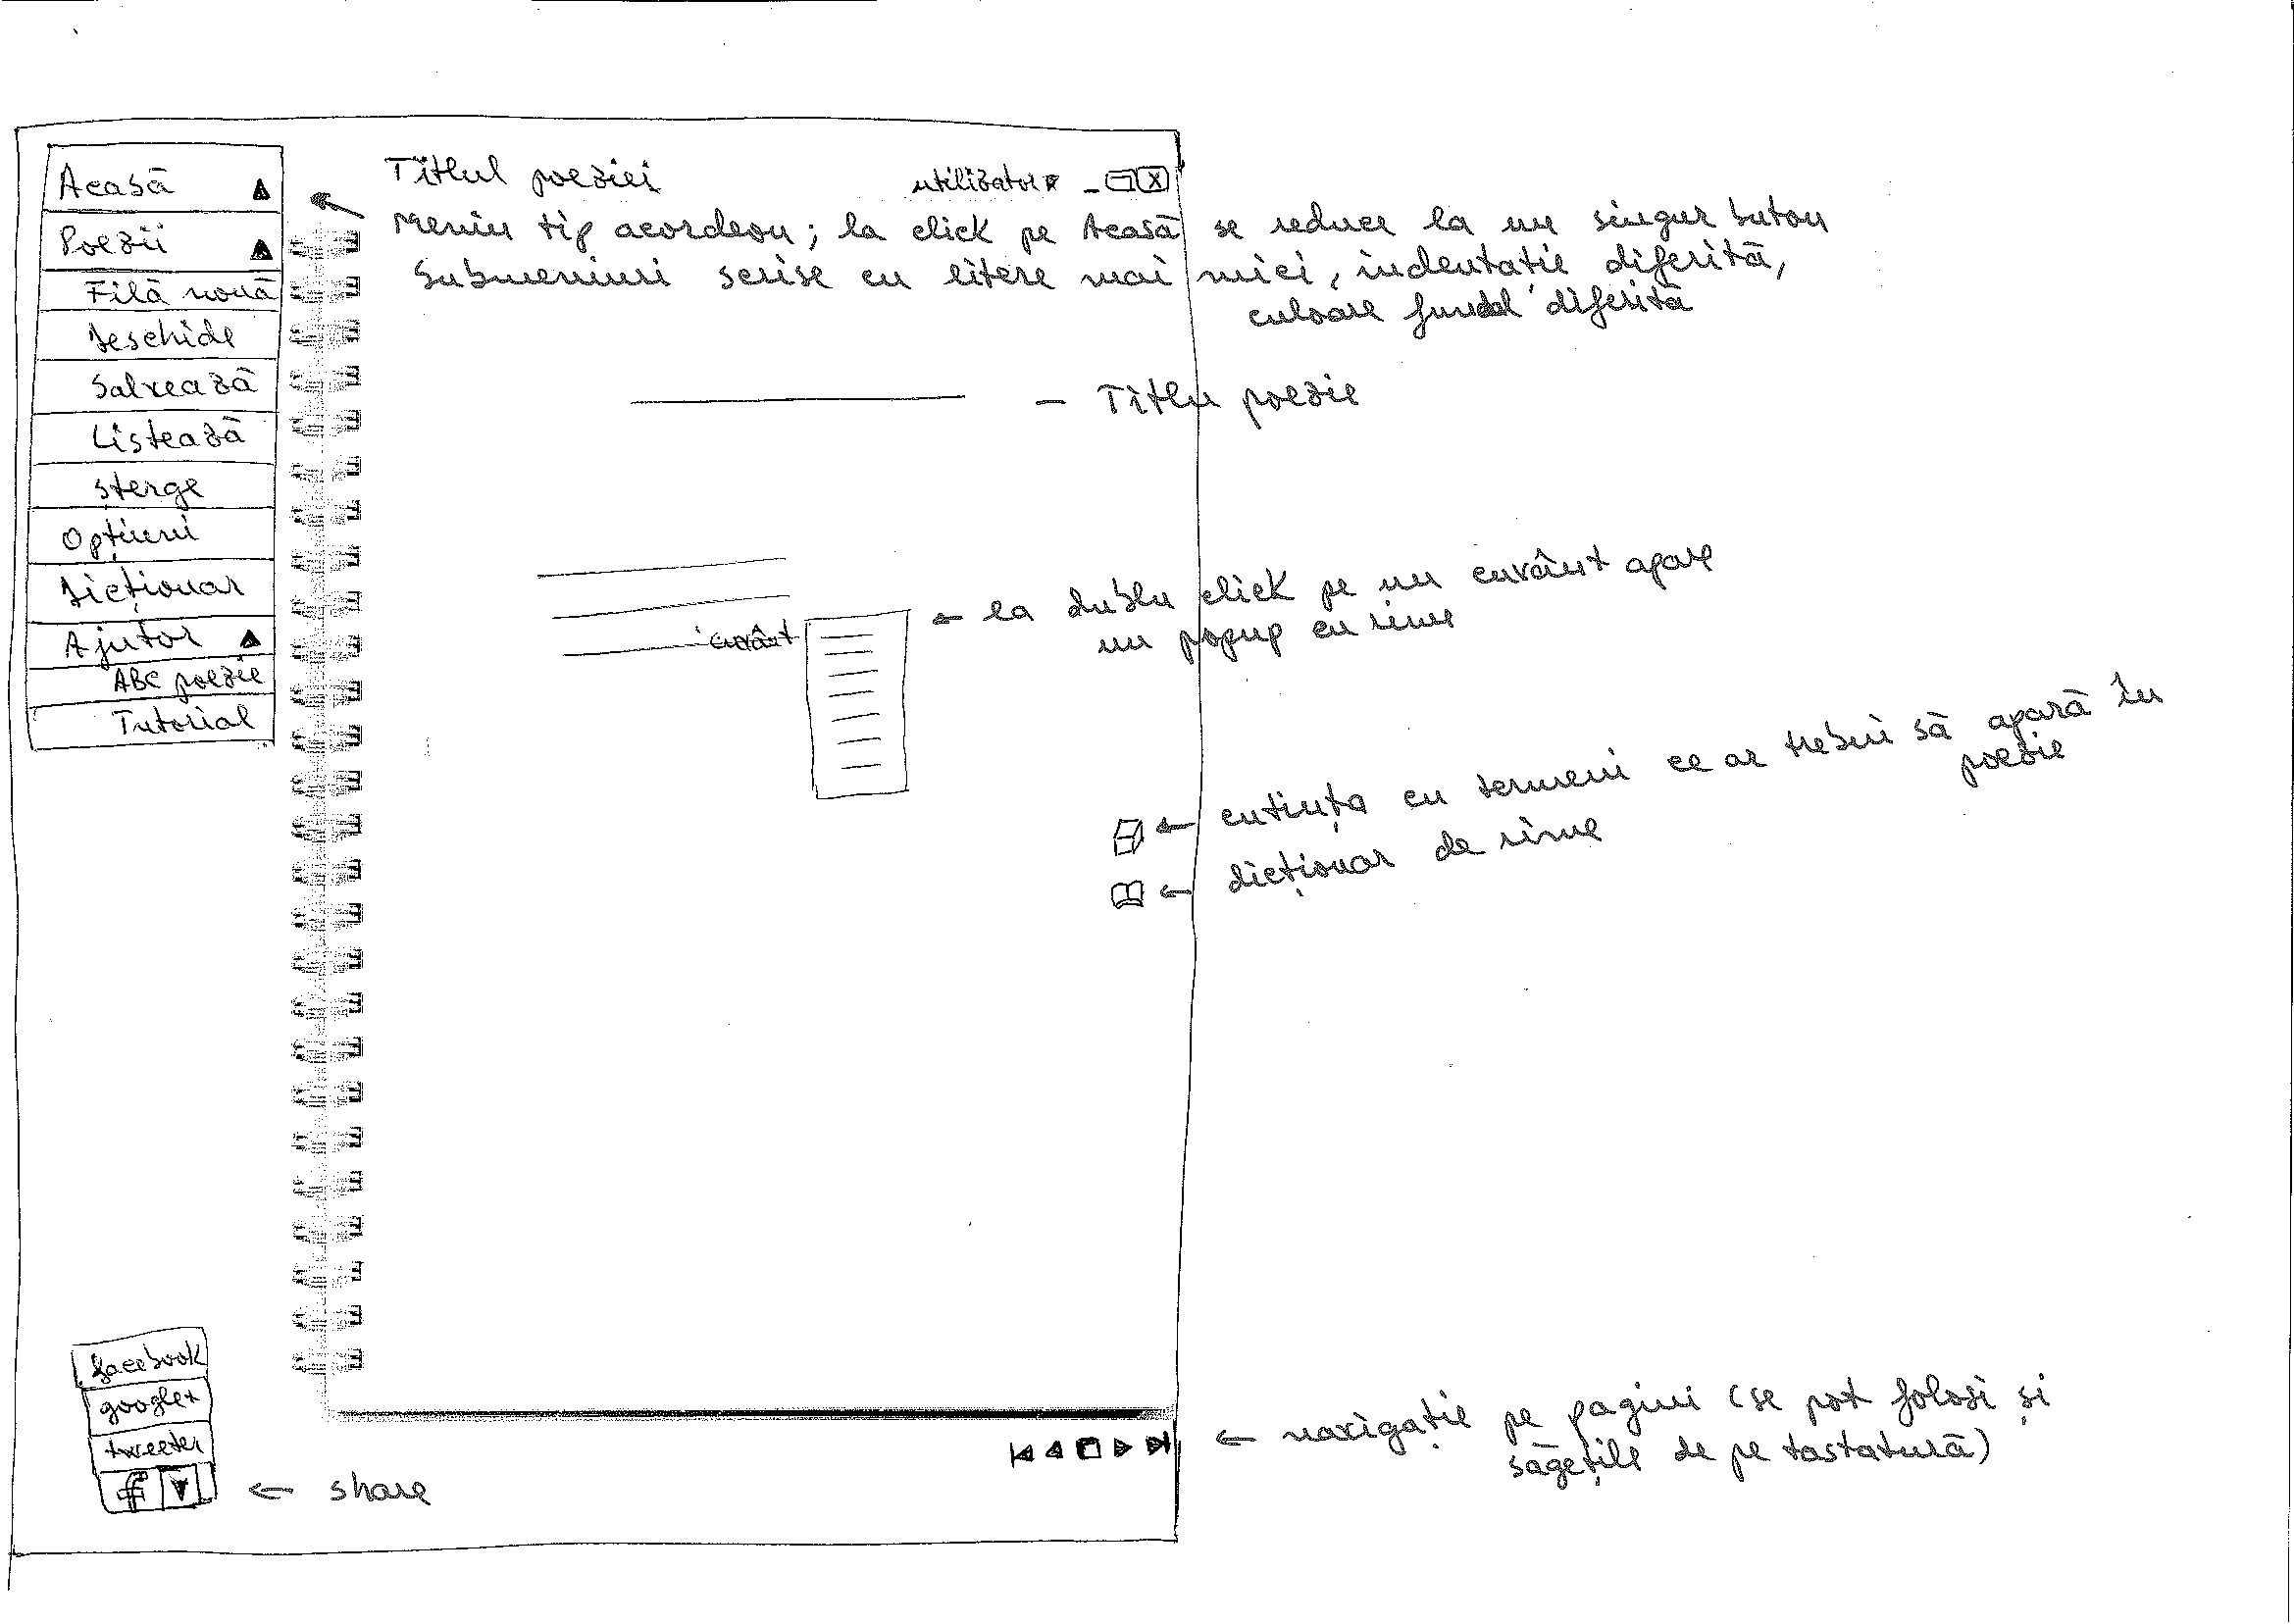 Acasă
Poezii
Filă nouă
Deschide
Salvează
Listează
Șterge
Opțiuni
Dicționar
Ajutor
ABC poezie
Tutorial
Titlul poeziei
utilizator
X
Meniu tip acordeon; la click pe Acasă se reduce la un singur buton
Submeniuri scrise cu litere mai mici, indentație diferită,
culoare fundal diferită
— Titlu poezie
cuvânt
← la dublu click pe un cuvânt apare
un popup cu rime
← cutiuța cu termeni ce ar trebui să apară în
poezie
← dicționar de rime
facebook
google+
tweeter
f
← share
← navigație pe pagini (se pot folosi și
săgețile de pe tastatură)